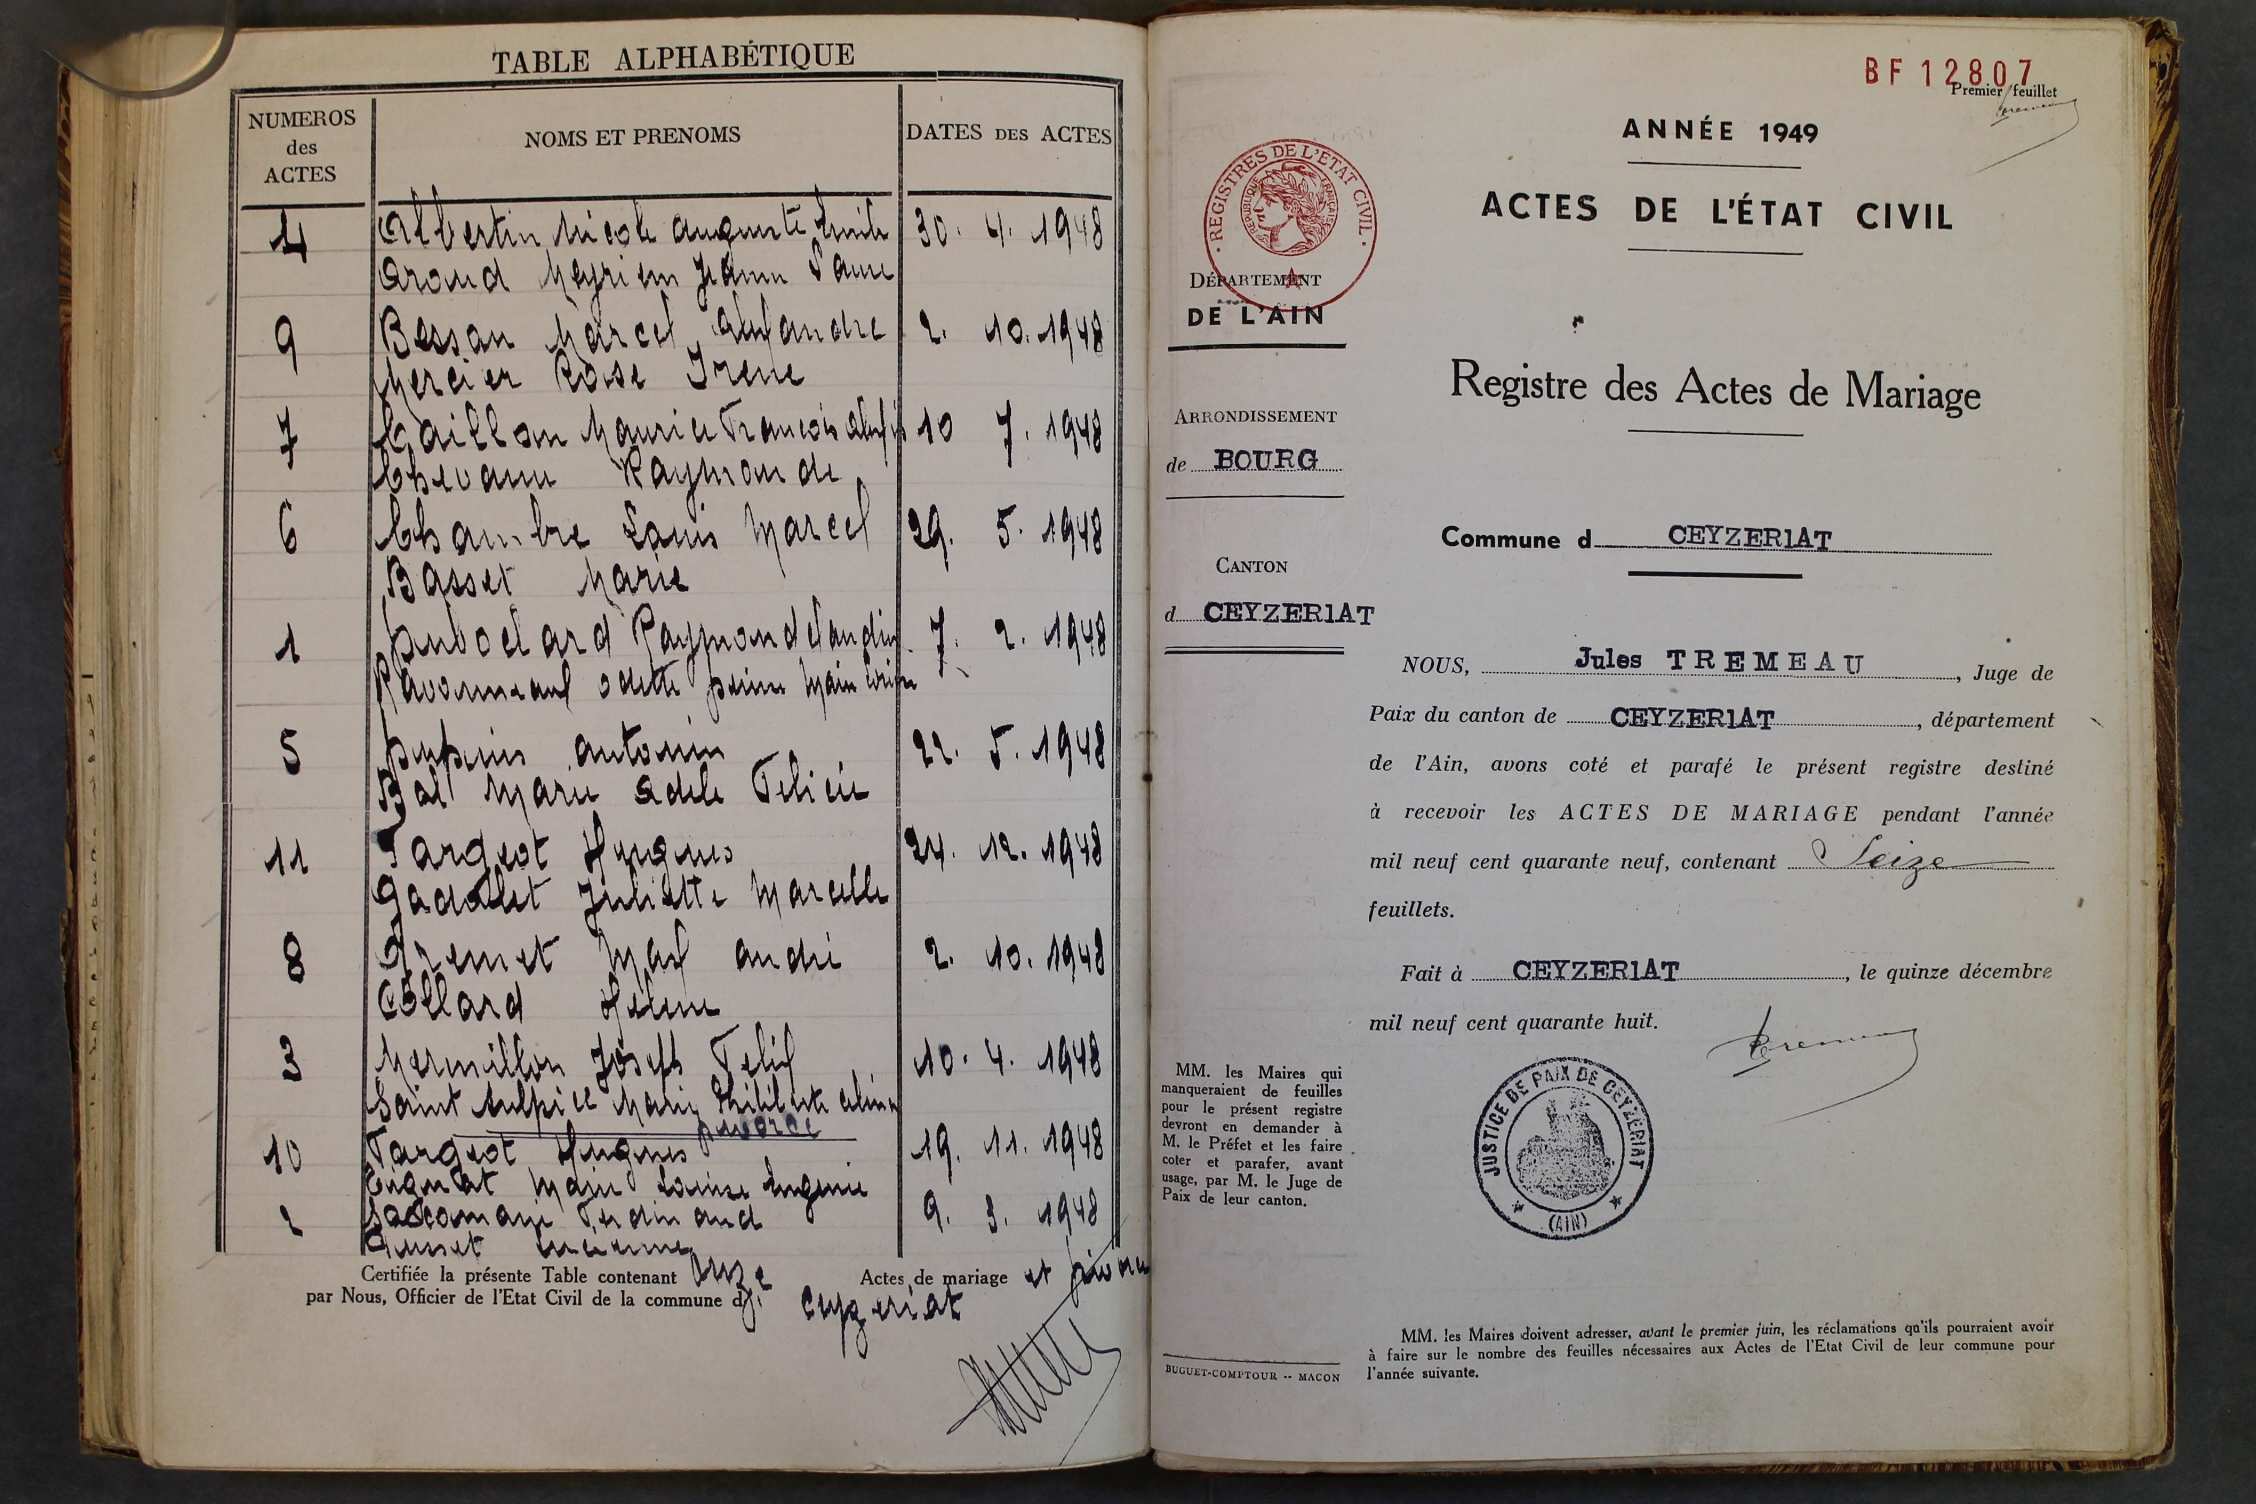 TABLE ALPHABÉTIQUE
NUMEROS
des
ACTES
NOMS ET PRENOMS
DATES DES ACTES
4 Albertin Nicole Auguste Emile 30. 4. 1948
Aroud Meyriem Jeanne
9 Bessan Marcel Alexandre 2. 10. 1948
Mercier Rose Irene
7 Caillon Maurice François Alexis 10 7. 1948
Chevann Raymonde
6 Chambre Louis Marcel 29. 5. 1948
Basset Marie
1 Raymond Claudius 7. 2. 1948
Odette
5 Dupuis Antonin 22. 5. 1948
Bal Marie Adele Felicie
11 Targeot Hugues 24. 12. 1948
Gadollet Juliette Marcelle
8 Grenet Max André 2. 10. 1948
Collard Helene
3 Mermillon Joseph Felix 10. 4. 1948
Saint Sulpice Marie Philiberte
divorce
10 Targeot Hugues 19. 11. 1948
Marie Louise Eugenie
2 Saccomani Ferdinand 9. 3. 1948
Lucienne
Certifiée la présente Table contenant Onze Actes de mariage et divorce
par Nous, Officier de l'Etat Civil de la commune de Ceyzeriat
BF 12807
Premier feuillet
ANNÉE 1949
ACTES DE L'ÉTAT CIVIL
· REGISTRES DE L'ETAT CIVIL ·
REPUBLIQUE FRANÇAISE
DÉPARTEMENT
DE L'AIN
Registre des Actes de Mariage
ARRONDISSEMENT
de BOURG
Commune d CEYZER1AT
CANTON
d CEYZER1AT
NOUS, Jules TREMEAU, Juge de
Paix du canton de CEYZER1AT, département
de l'Ain, avons coté et parafé le présent registre destiné
à recevoir les ACTES DE MARIAGE pendant l'année
mil neuf cent quarante neuf, contenant Seize
feuillets.
Fait à CEYZER1AT, le quinze décembre
mil neuf cent quarante huit.
JUSTICE DE PAIX DE CEYZERIAT
(AIN)
MM. les Maires qui
manqueraient de feuilles
pour le présent registre
devront en demander à
M. le Préfet et les faire
coter et parafer, avant
usage, par M. le Juge de
Paix de leur canton.
MM. les Maires doivent adresser, avant le premier juin, les réclamations qu'ils pourraient avoir
à faire sur le nombre des feuilles nécessaires aux Actes de l'Etat Civil de leur commune pour
l'année suivante.
BUGUET-COMPTOUR -- MACON